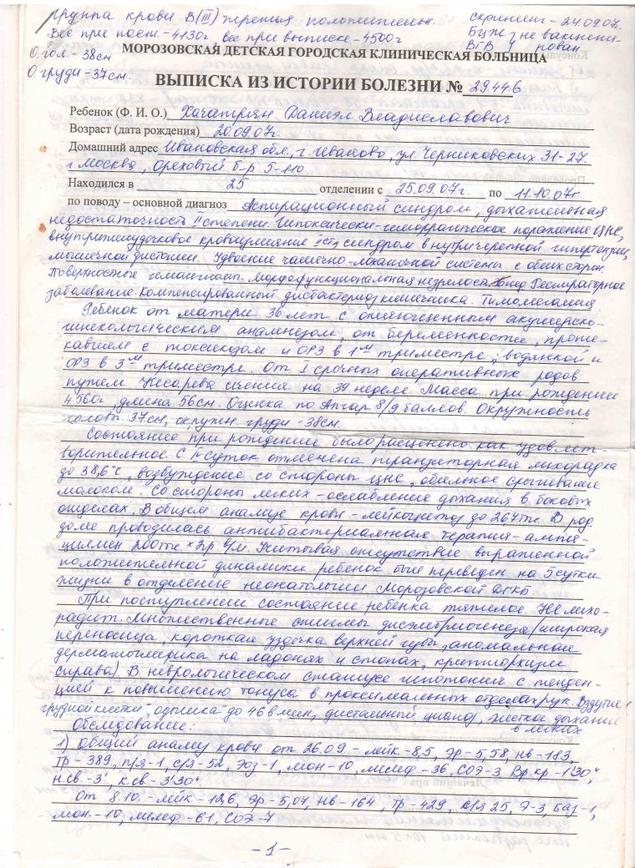 группа крови В(III) третья положительн.
скрининг - 24.09.07.
Вес при пост. - 4130г вес при выписке - 4500г
БЦЖ } не вакцини-
ВГВ } рован
О гол. - 38см
О груди - 37см
МОРОЗОВСКАЯ ДЕТСКАЯ ГОРОДСКАЯ КЛИНИЧЕСКАЯ БОЛЬНИЦА
ВЫПИСКА ИЗ ИСТОРИИ БОЛЕЗНИ № 29446
Ребенок (Ф. И. О.) Хачатрян Даниэл Владиславович
Возраст (дата рождения) 20.09.07г.
Домашний адрес Ивановская обл., г. Иваново, ул Черниковских 31-27
г. Москва, Ореховый б-р 5-110
Находился в 25 отделении с 25.09.07г. по 11.10.07г
по поводу – основной диагноз Аспирационный синдром, дыхательная
недостаточность II степени. Гипоксически-геморрагическое поражение ЦНС,
внутрижелудочковое кровоизлияние I ст, синдром внутричерепной гипертензии,
мышечной дистонии. Удвоение чашечно-лоханочной системы с обеих сторон.
Морфофункциональная незрелость. Респираторное
заболевание. Компенсированный дисбактериоз кишечника. Тимомегалия
Ребенок от матери 36 лет с отягощенным акушерско-
гинекологическим анамнезом, от беременности, проте-
кавшей с токсикозом и ОРЗ в 1ом триместре, водянкой и
ОРЗ в 3ем триместре. От I срочных оперативных родов
путем Кесарева сечения на 39 неделе. Масса при рождении
4560г длина 56см. Оценка по Апгар 8/9 баллов. Окружность
головы 37см, окружн. груди - 38см.
Состояние при рождении было расценено как удовлет-
ворительное. С суток отмечена транзиторная лихорадка
до 38,6°С, возбуждение со стороны ЦНС, обильное срыгивание
молоком. Со стороны легких - ослабление дыхания в боковых
отделах. В общем анализе крови - лейкоцитоз до 26,4 тыс. В род
доме проводилась антибактериальная терапия - ампи-
циллин 2р в/м. Учитывая отсутствие выраженной
положительной динамики ребенок был переведен на 5 сутки
жизни в отделение неонатологии Морозовской ДГКБ
При поступлении состояние ребенка тяжелое. Не лихо-
радит. Множественные стигмы дисэмбриогенеза (широкая
переносица, короткая уздечка верхней губы, аномальная
дерматоглифика на ладонях и стопах, крипторхизм
справа). В неврологическом статусе гипотония с тенден-
цией к повышению тонуса в проксимальных отделах рук. Вздутие
грудной клетки, одышка до 46 в мин, дистальный цианоз, жесткое дыхание
в легких
Обследование:
1) Общий анализ крови от 26.09 - лейк - 8,5, Эр - 5,58, нв - 183,
Тр - 389, п/я - 1, с/я - 52, эоз - 1, мон - 10, лимф - 36, СОЭ - 3. Вр. кр - 1'30",
н.св - 3', к.св - 3'30"
От 8.10. - лейк - 12,6, Эр - 5,07, Нв - 164, Тр - 429, с/я 25, Э - 3, баз - 1,
мон. - 10, лимф - 61, СОЭ - 7
- 1 -